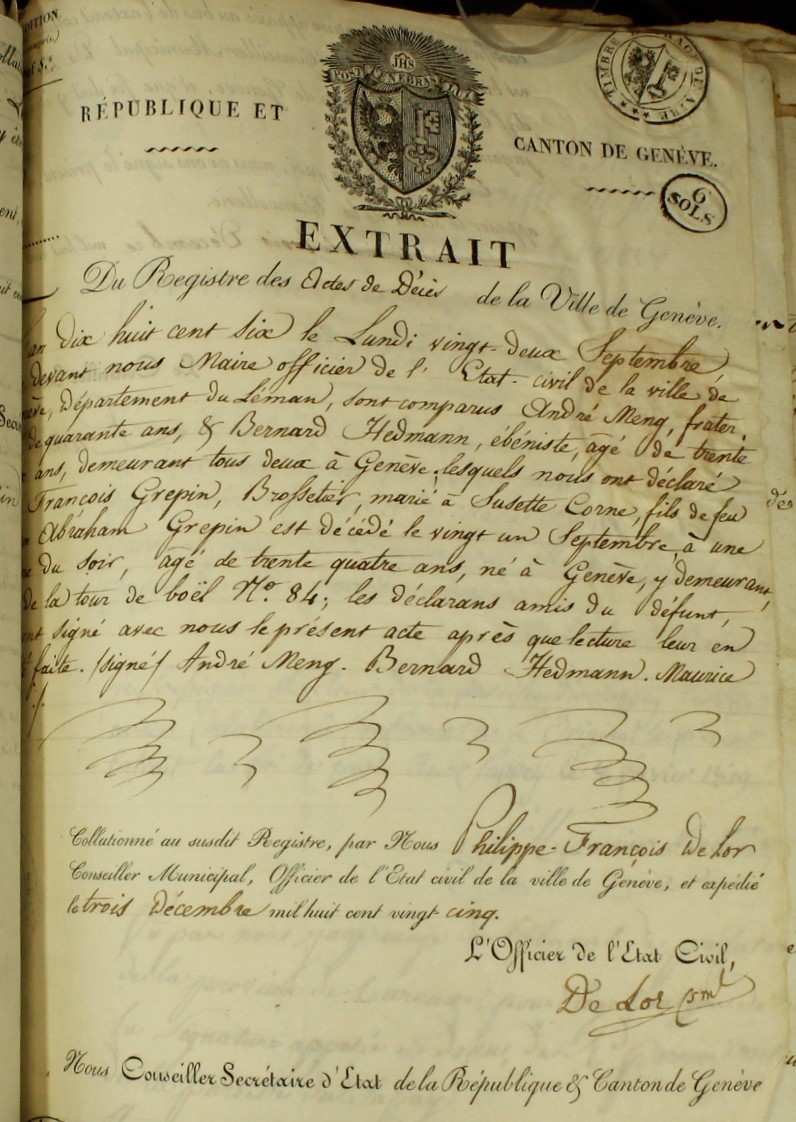 JHS
POST TENEBRAS LUX
TIMBRE
6 SOLS
RÉPUBLIQUE ET
CANTON DE GENÈVE.
EXTRAIT
Du Registre des Actes de Décès de la Ville de Genève.
dix huit cent six le Lundi vingt-deux Septembre,
devant nous Maire officier de l'Etat-civil de la ville de
Département du Léman, sont comparus André Meng, frater,
de quarante ans, & Bernard Hedmann, ébéniste, agé de trente
ans, demeurant tous deux à Genève; lesquels nous ont déclaré
François Grepin, Brossetier, marié à Susette Corne, fils de feu
Abraham Grepin est décédé le vingt un Septembre, à une
du soir, agé de trente quatre ans, né à Genève, y demeurant,
de la tour de boël No. 84; les déclarans amis du défunt,
signé avec nous le présent acte après que lecture leur en
faite. /signé/ André Meng. Bernard Hedmann. Maurice
Collationné au susdit Registre, par Nous Philippe-François De Lor
Conseiller Municipal, Officier de l'Etat civil de la ville de Genève, et expédié
le trois Décembre mil huit cent vingt cinq.
L'Officier de l'Etat Civil,
De Lor
Nous Conseiller Secrétaire d'Etat de la République & Canton de Genève